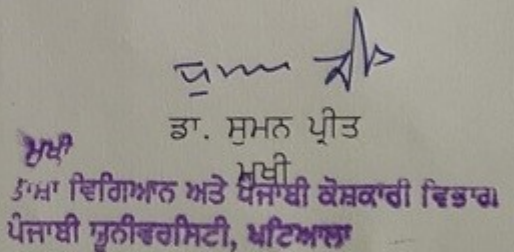 ਡਾ. ਸੁਮਨ ਪ੍ਰੀਤ
ਮੁਖੀ
ਮੁਖੀ
ਭਾਸ਼ਾ ਵਿਗਿਆਨ ਅਤੇ ਪੰਜਾਬੀ ਕੋਸ਼ਕਾਰੀ ਵਿਭਾਗ
ਪੰਜਾਬੀ ਯੂਨੀਵਰਸਿਟੀ, ਪਟਿਆਲਾ